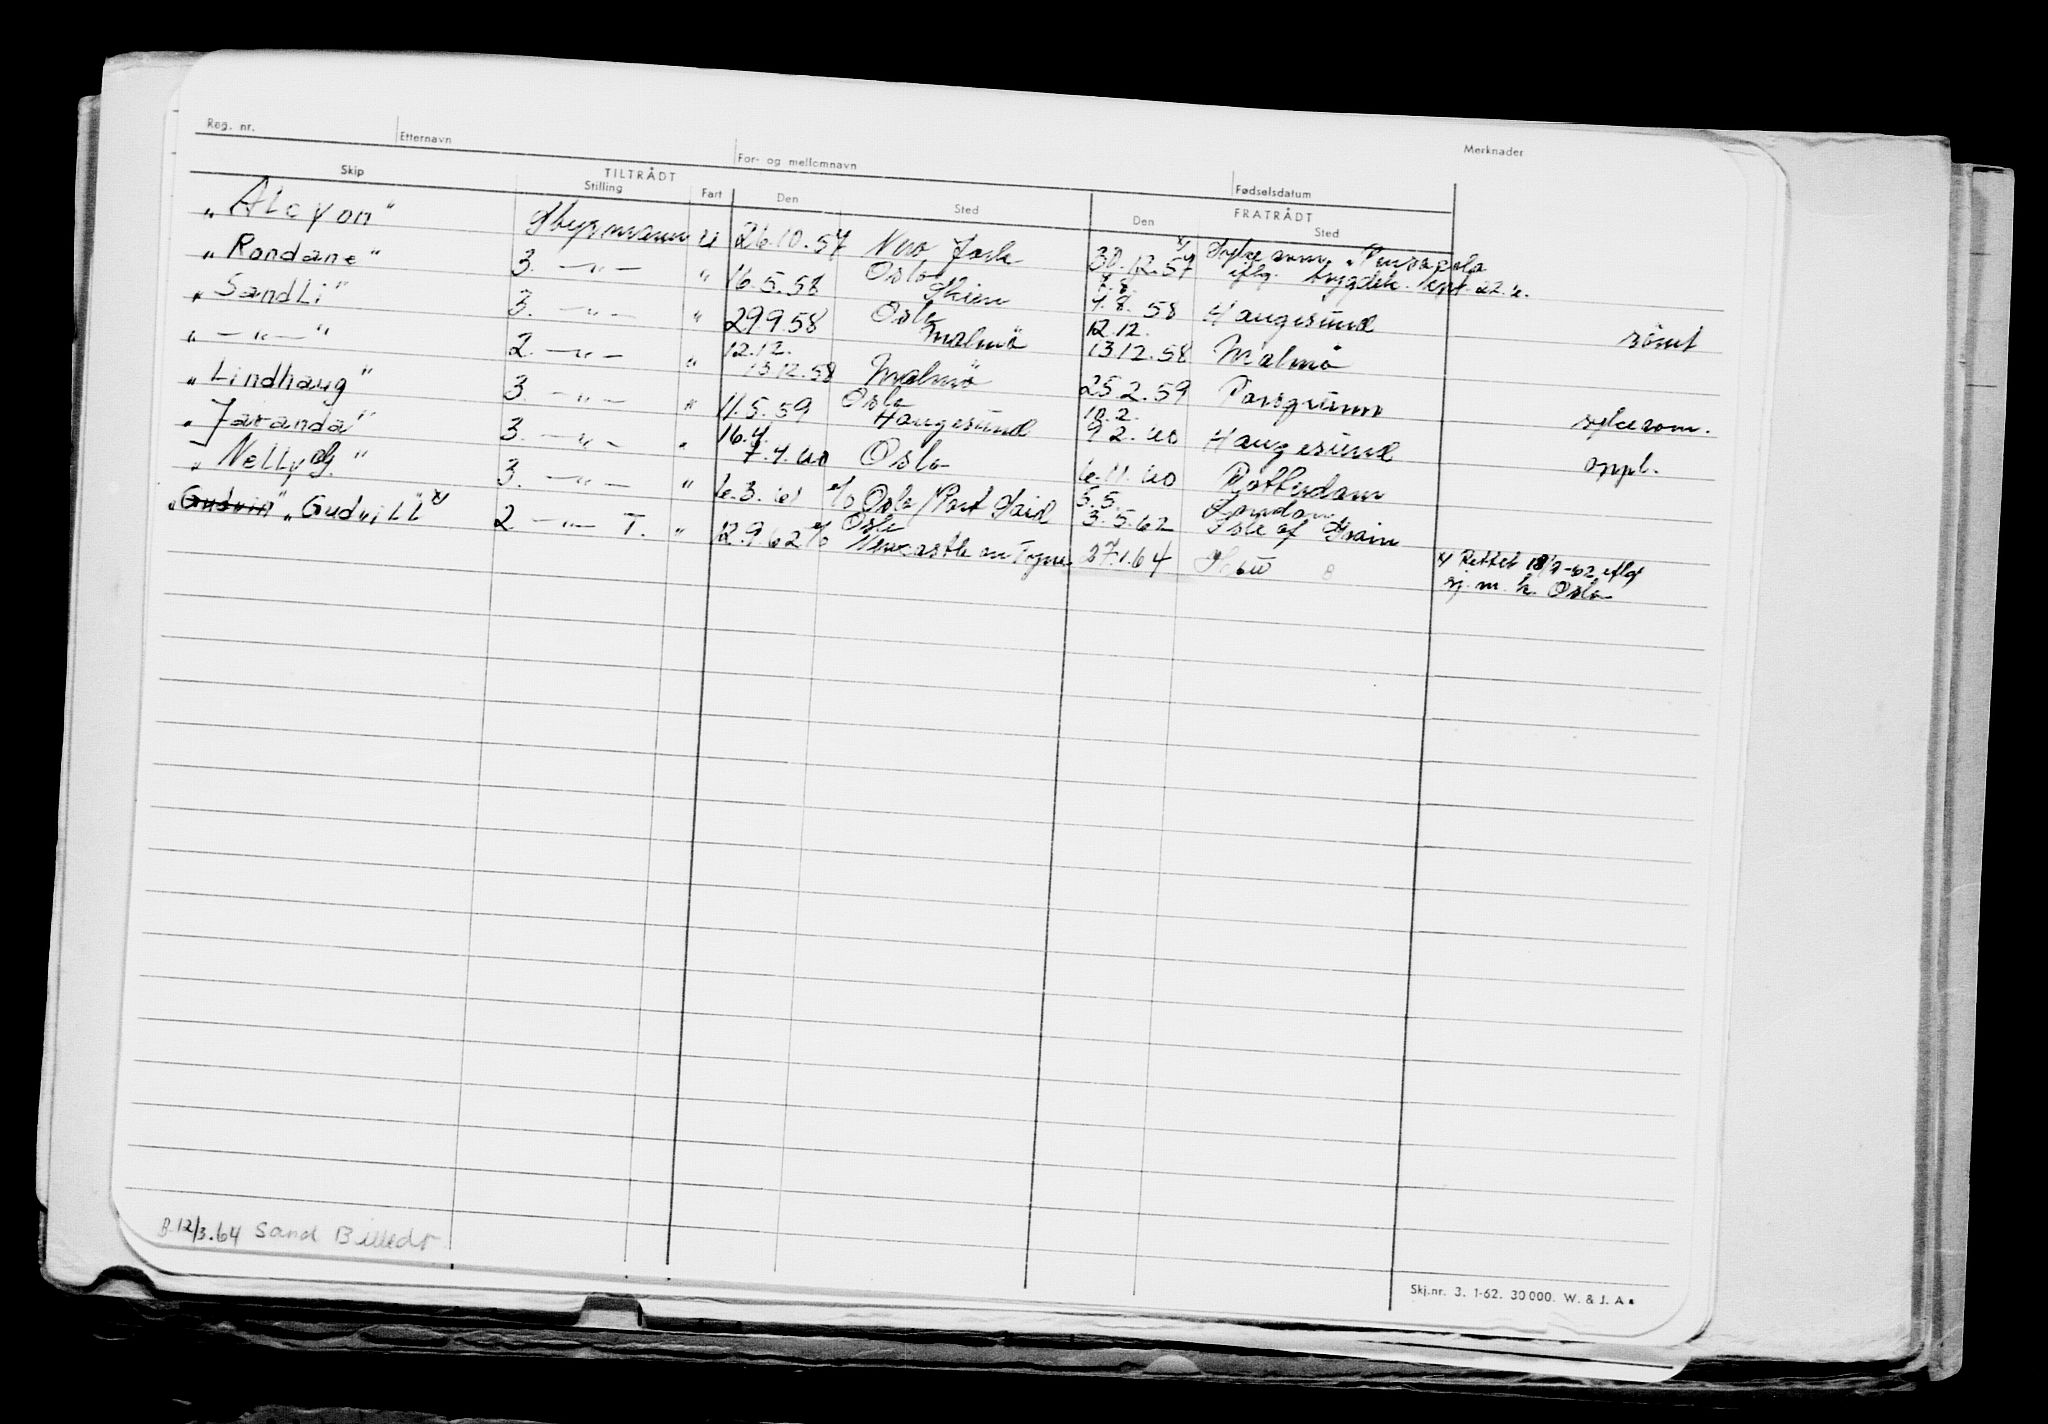 Reg. nr. Etternavn For- og mellomnavn Fødselsdatum Merknader
TILTRÅDT FRATRÅDT
Skip Stilling Fart Den Sted Den Sted
"Alcyon" Styrmann U 26.10.57 New York 30.12.57 x/ Syke rom.
eflg. trygdek.
"Rondane" 3. —"— " 16.5.58 Oslo Skien 7.8.
4.8.58 Haugesund
"SandLi" 3. —"— " 29.9.58 Oslo Malmö 12.12.
13.12.58 Malmö sømt
"—"—" 2. —"— " 12.12.
13.12.58 Malmö 25.2.59 Porsgrunn
"Lindhaug" 3. —"— " 11.5.59 Oslo Haugesund 10.2.
9.2.60 Haugesund sykerom.
"Jaranda" 3. —"— " 16.4.
7.4.60 Oslo 6.11.60 Rotterdam oppl.
"Nelly" 3. —"— " 6.3.61 Oslo/Port Said 5.5.
3.5.62 London
Isle of Grain
"Gudvin" "GudviLL" x/ 2 —"— T. " 12.9.62 Oslo
Newcastle on Tyne 27.1.64
x/ Rettet 18/9-62 eflg
sj. m. k. Oslo
B. 12/3.64 Sand Billedr
Skj.nr. 3. 1-62. 30 000. W. & J. A.